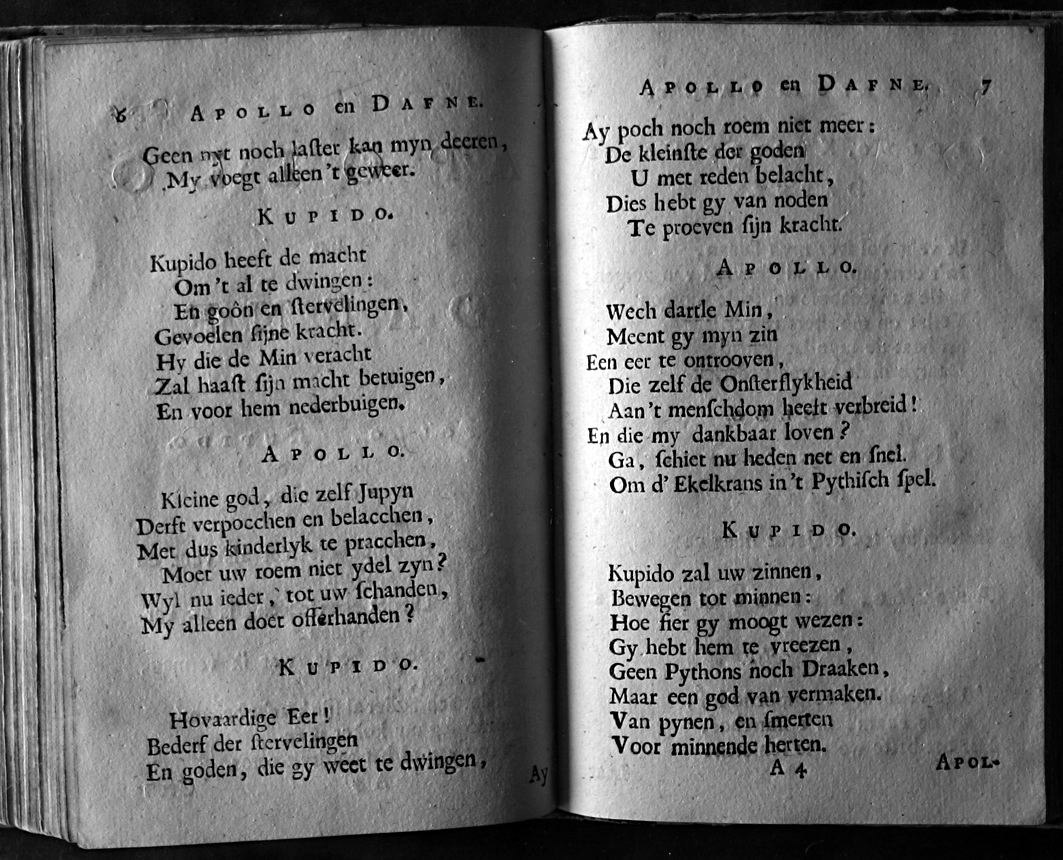 6 APOLLO en DAFNE.
Geen nyt noch laſter kan myn deeren,
My voegt alleen 't geweer.
KUPIDO.
Kupido heeft de macht
Om 't al te dwingen:
En goôn en ſtervelingen,
Gevoelen ſijne kracht.
Hy die de Min veracht
Zal haaſt ſijn macht betuigen,
En voor hem nederbuigen.
APOLLO.
Kleine god, die zelf Jupyn
Derft verpocchen en belacchen,
Met dus kinderlyk te pracchen,
Moet uw roem niet ydel zyn?
Wyl nu ieder, tot uw ſchanden,
My alleen doet offerhanden?
KUPIDO.
Hovaardige Eer!
Bederf der ſtervelingen
En goden, die gy weet te dwingen,
Ay
APOLLO en DAFNE. 7
Ay poch noch roem niet meer:
De kleinſte der goden
U met reden belacht,
Dies hebt gy van noden
Te proeven ſijn kracht.
APOLLO.
Wech dartle Min,
Meent gy myn zin
Een eer te ontrooven,
Die zelf de Onſterflykheid
Aan 't menſchdom heeft verbreid!
En die my dankbaar loven?
Ga, ſchiet nu heden net en ſnel.
Om d' Ekelkrans in 't Pythiſch ſpel.
KUPIDO.
Kupido zal uw zinnen,
Bewegen tot minnen:
Hoe fier gy moogt wezen:
Gy hebt hem te vreezen,
Geen Pythons noch Draaken,
Maar een god van vermaken.
Van pynen, en ſmerten
Voor minnende herten.
A 4 APOL-